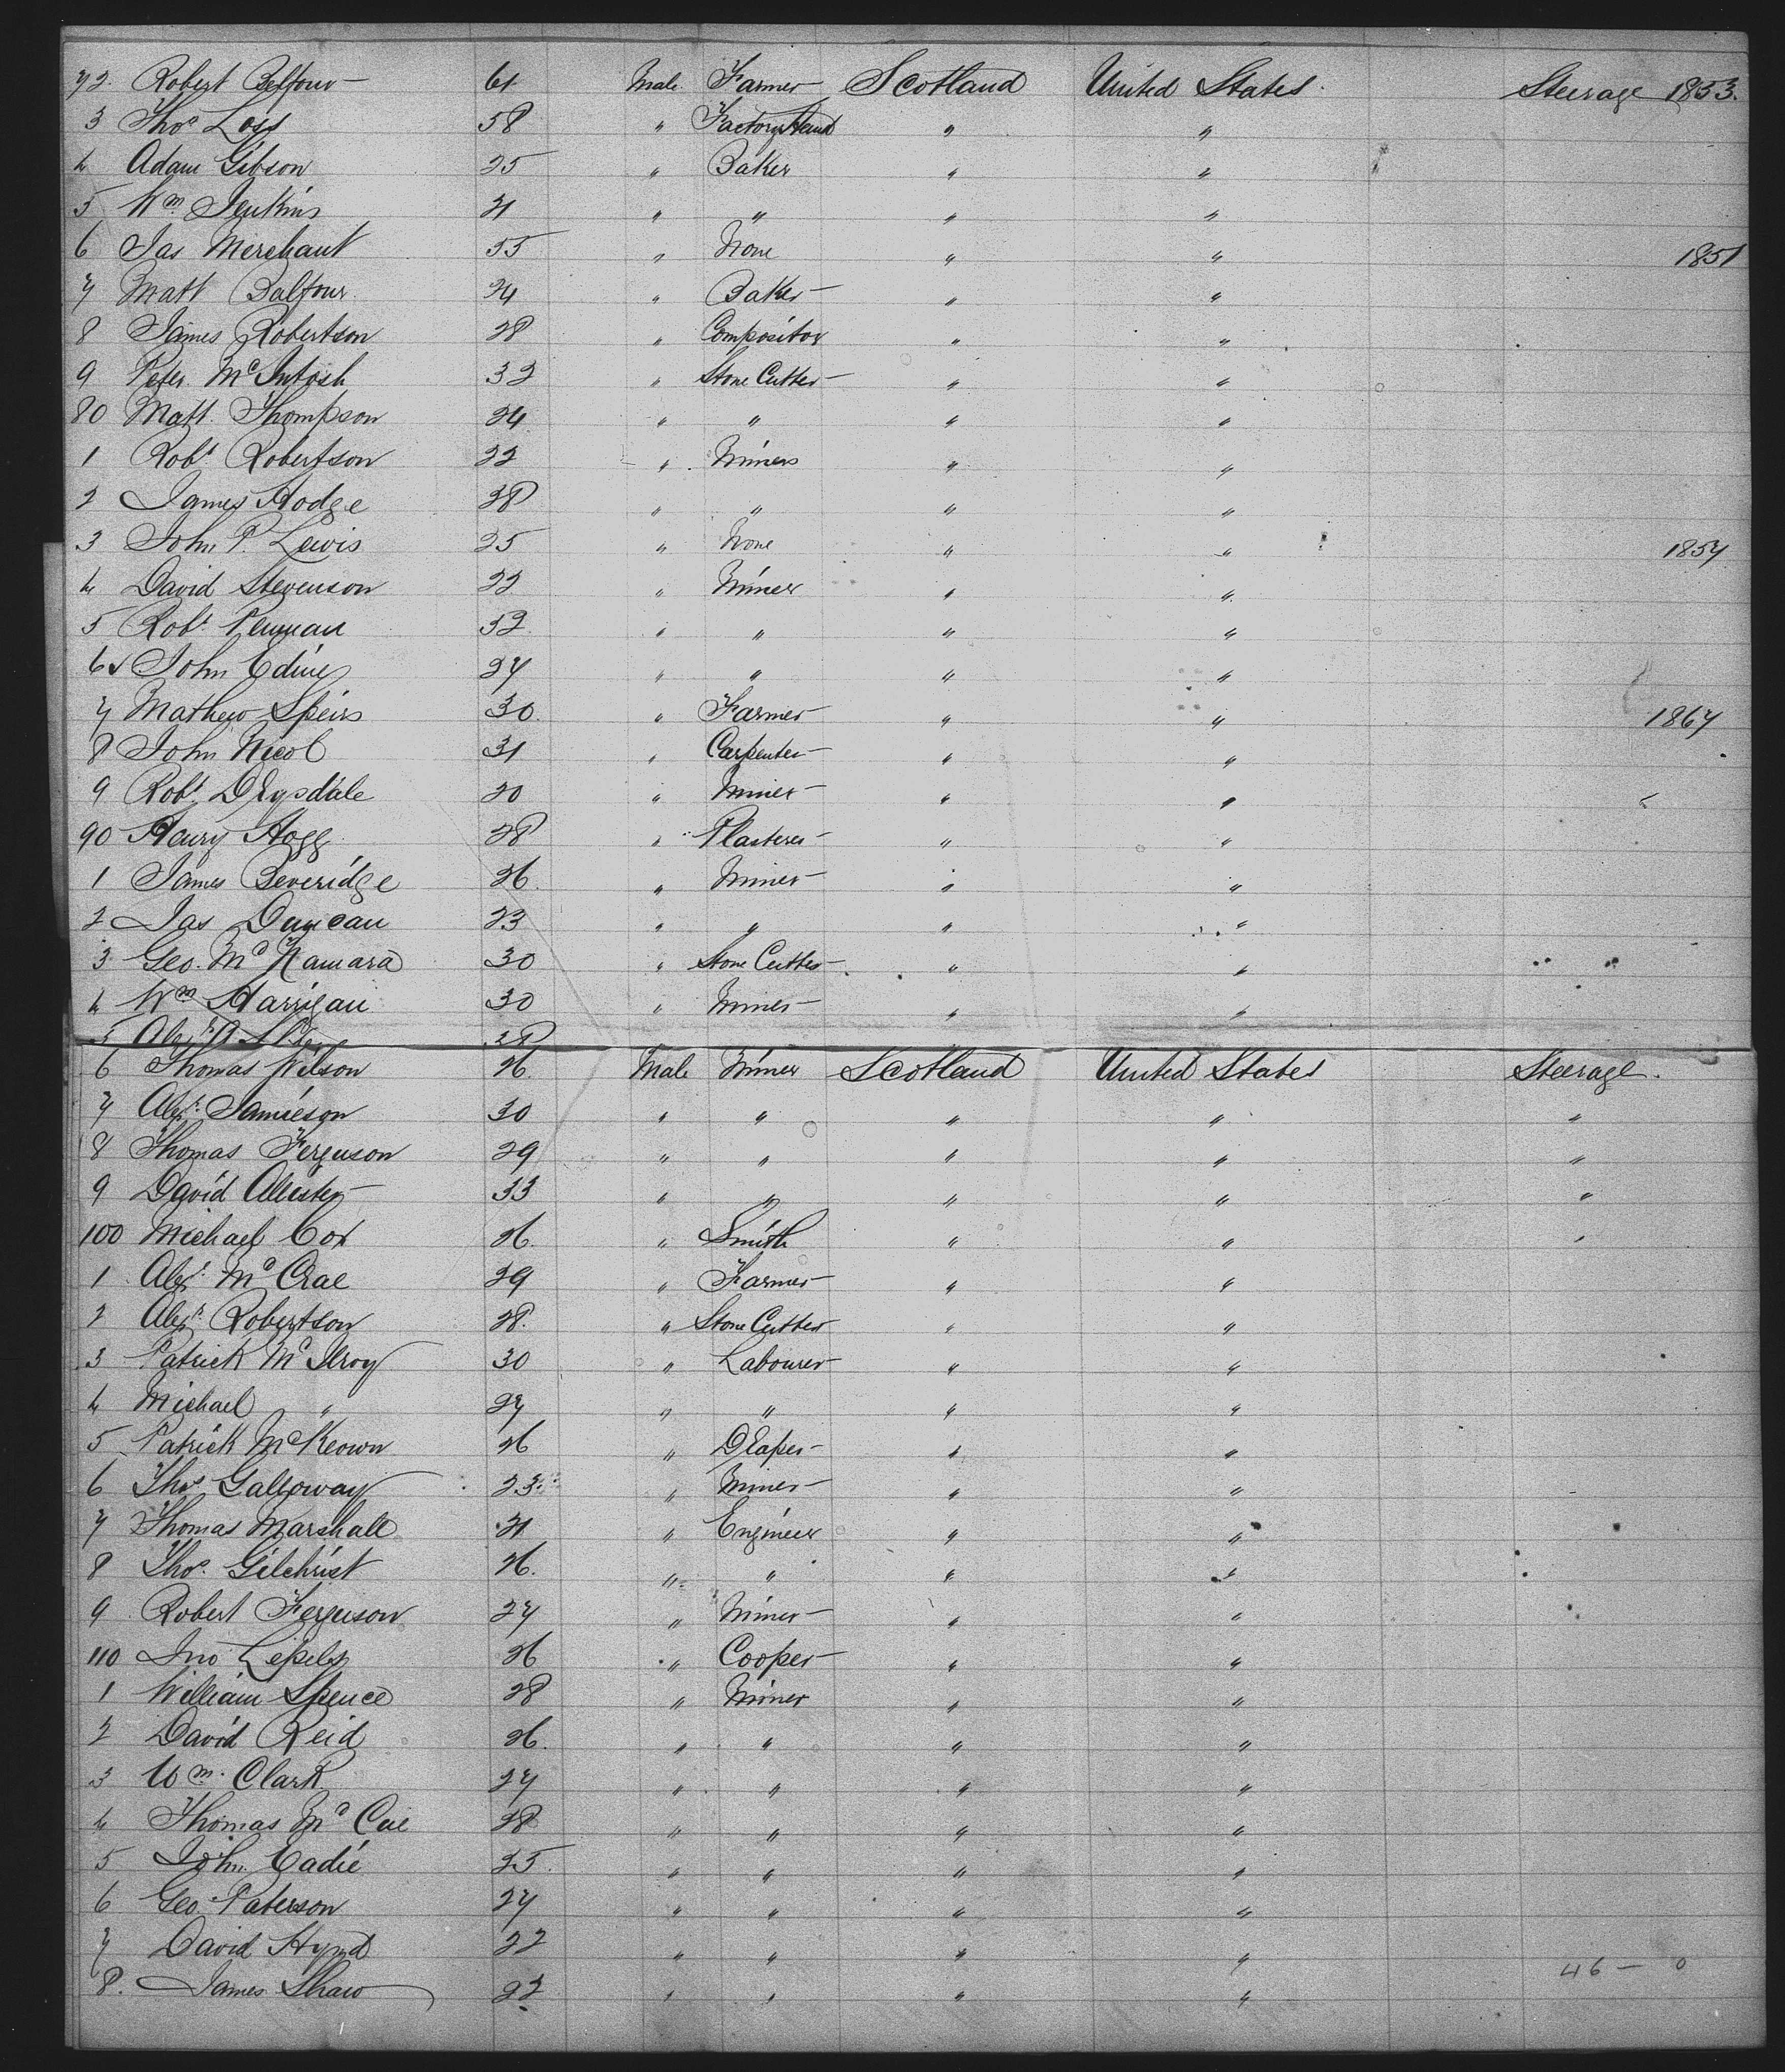 72. Robert Belfour 61 Male Farmer Scotland United States Steerage 1853.
3 Thos Loss 58 " Factory Hand " "
4 Adam Gibson 25 " Baker " "
5 Wm Jenkins 21 " " " "
6 Jas Merchant 55 " None " " 1851
7 Matt Balfour 24 " Baker " "
8 James Robertson 28 " Compositor " "
9 Peter McIntosh 32 " Stone Cutter " "
80 Matt. Thompson 24 " " " "
1 Robt Robertson 22 " Miner " "
2 James Hodge 38 " " " "
3 John P. Lewis 25 " None " " 1857
4 David Stevenson 22 " Miner " "
5 Robt Penman 52 " " " "
6 John 27 " " " "
7 Mathew Speirs 30 " Farmer " " 1867
8 John Nicol 31 " Carpenter " "
9 Robt Drysdale 20 " Miner " "
90 Henry Hogg 28 " Plasterer " "
1 James Beveridge 26 " Miner " "
2 Jas Duncan 23 " " " "
3 Geo. McNamara 30 " Stone Cutter " "
4 Wm Harrigan 30 " Miner " "
5 Alexr 28
6 Thomas Wilson 26 Male Miner Scotland United States Steerage.
7 Alexr Jamieson 30 " " " " "
8 Thomas Ferguson 29 " " " " "
9 David 33 " " " " "
100 Michael Cox 26 " Smith " " "
1 Alexr McCrae 29 " Farmer " "
2 Alexr Robertson 28. " Stone Cutter " "
3 Patrick McIlroy 30 " Labourer " "
4 Michael " 27 " " " "
5 Patrick McKeown 26 " Draper " "
6 Thos Galloway 23 " Miner " "
7 Thomas Marshall 21 " Engineer " "
8 Thos. Gilchrist 26. " " " "
9 Robert Ferguson 27 " Miner " "
110 Jno 26 " Cooper " "
1 William Spence 28 " Miner " "
2 David Reid 26. " " " "
3 Wm. Clark 27 " " " "
4 Thomas McCue 28 " " " "
5 John Eadie 25. " " " "
6 Geo. Paterson 27 " " " "
7 David Hynd 22 " " " "
8. James Shaw 22 " " " "
46 - 0